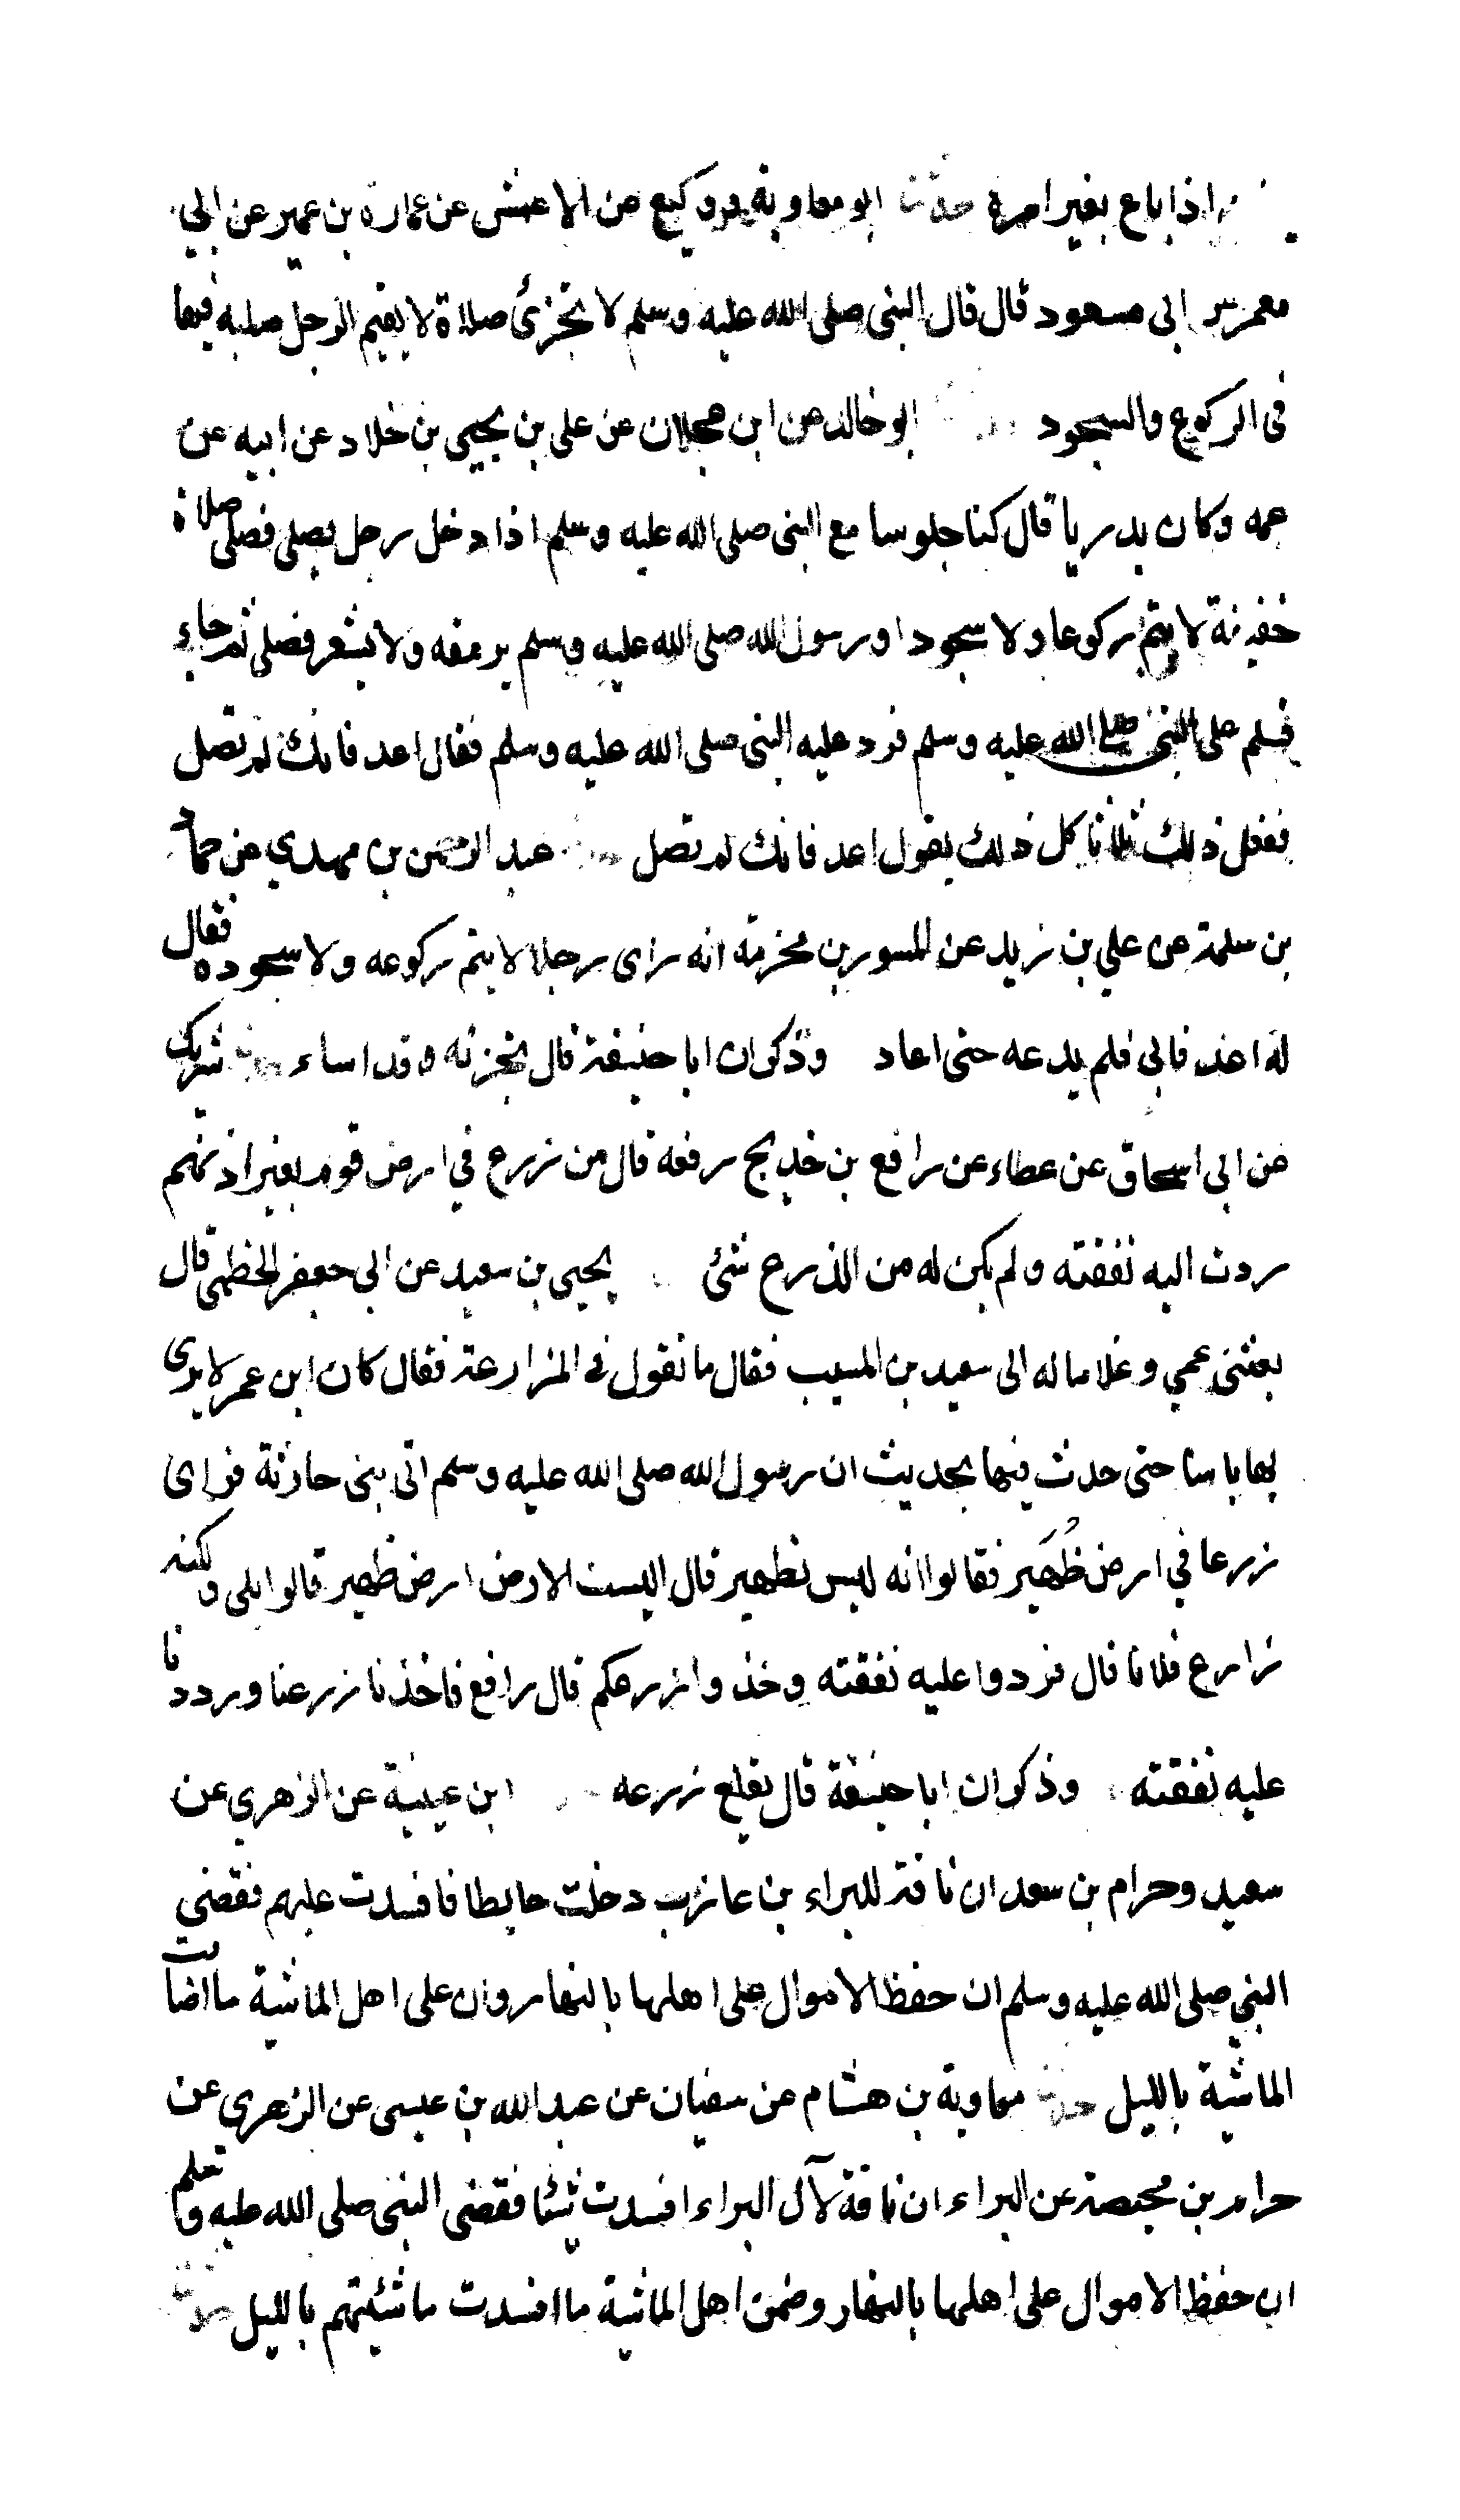 اذا باع بغير امره حدثنا ابو معاوية و وكيع عن الاعمش عن عمارة بن عمير عن ابي
معمر عن ابى مسعود قال قال النبى صلى الله عليه وسلم لا تجزئ صلاة لا يقيم الرجل صلبه فيها
فى الركوع والسجود ابو خالد عن ابن عجلان عن على بن يحيى بن خلاد عن ابيه عن
عمه وكان بدريا قال كنا جلوسا مع النبى صلى الله عليه وسلم اذا دخل رجل يصلى فصلى صلاة
خفيفة لا يتم ركوعا ولا سجودا ورسول الله صلى الله عليه وسلم يرمقه ولا يشعر فصلى ثم جاء
فسلم على النبى صلى الله عليه وسلم فرد عليه النبى صلى الله عليه وسلم فقال اعد فانك لم تصل
ففعل ذلك ثلاثا كل ذلك يقول اعد فانك لم تصل عبد الرحمن بن مهدي عن حماد
بن سلمة عن علي بن زيد عن المسور بن مخرمة انه راى رجلا لا يتم ركوعه ولا سجوده فقال
له اعد فابى فلم يدعه حتى اعاد وذكر ان ابا حنيفة قال يجزئه وقد اساء حدثنا شريك
عن ابى اسحاق عن عطاء عن رافع بن خديج رفعه قال من زرع في ارض قوم بغير اذنهم
ردت اليه نفقته ولم يكن له من الزرع شئ يحيى بن سعيد عن ابي جعفر الخطمى قال
بعثنى عمي وغلاما له الى سعيد بن المسيب فقال ما تقول في المزارعة فقال كان ابن عمر لا يرى
بها باسا حتى حدث فيها بحديث ان رسول الله صلى الله عليه وسلم اتى بنى حارثة فراى
زرعا في ارض ظُهَير فقالوا انه ليس لظهير قال اليست الارض ارض ظهير قالوا بلى ولكنه
زارع فلانا قال فردوا عليه نفقته وخذوا زرعكم قال رافع فاخذنا زرعنا ورددنا
عليه نفقته وذكر ان ابا حنيفة قال يقلع زرعه ابن عيينة عن الزهري عن
سعيد وحرام بن سعد ان ناقة للبراء بن عازب دخلت حايطا فافسدت عليهم فقضى
النبي صلى الله عليه وسلم ان حفظ الاموال على اهلها بالنهار وان على اهل الماشية ما اصابت
الماشية بالليل حدثنا معاوية بن هشام عن سفيان عن عبد الله بن عيسى عن الزهري عن
حرام بن محيصة عن البراء ان ناقة لآل البراء افسدت شيئا فقضى النبى صلى الله عليه وسلم
ان حفظ الاموال على اهلها بالنهار وضمن اهل الماشية ما افسدت ماشيتهم بالليل حدثنا